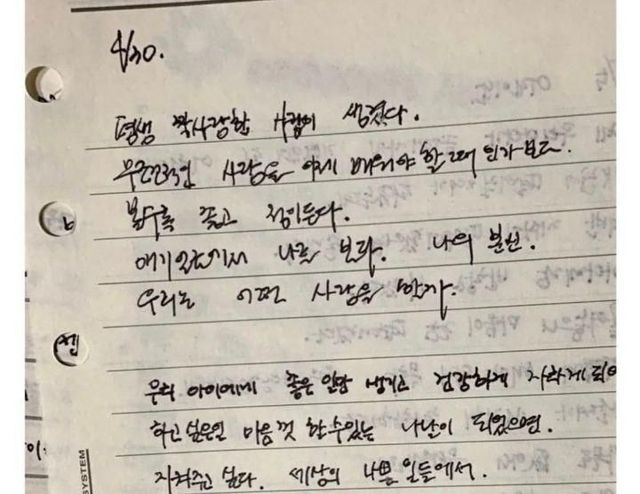 4/30.
평생 짝사랑할 사람이 생겼다.
무조건적인 사랑을 이제 배워야 할 때 인가보다.
볼수록 좋고 정이든다.
애기 얼굴에서 나를 보다. 나의 분신.
우리는 어떤 사랑을 할까.
우리 아이에게 좋은 일만 생기고 건강하게 자라게 되어
하고싶은일 마음껏 할수있는 나날이 되었으면.
지켜주고 싶다. 세상의 나쁜 일들에서.
SYSTEM